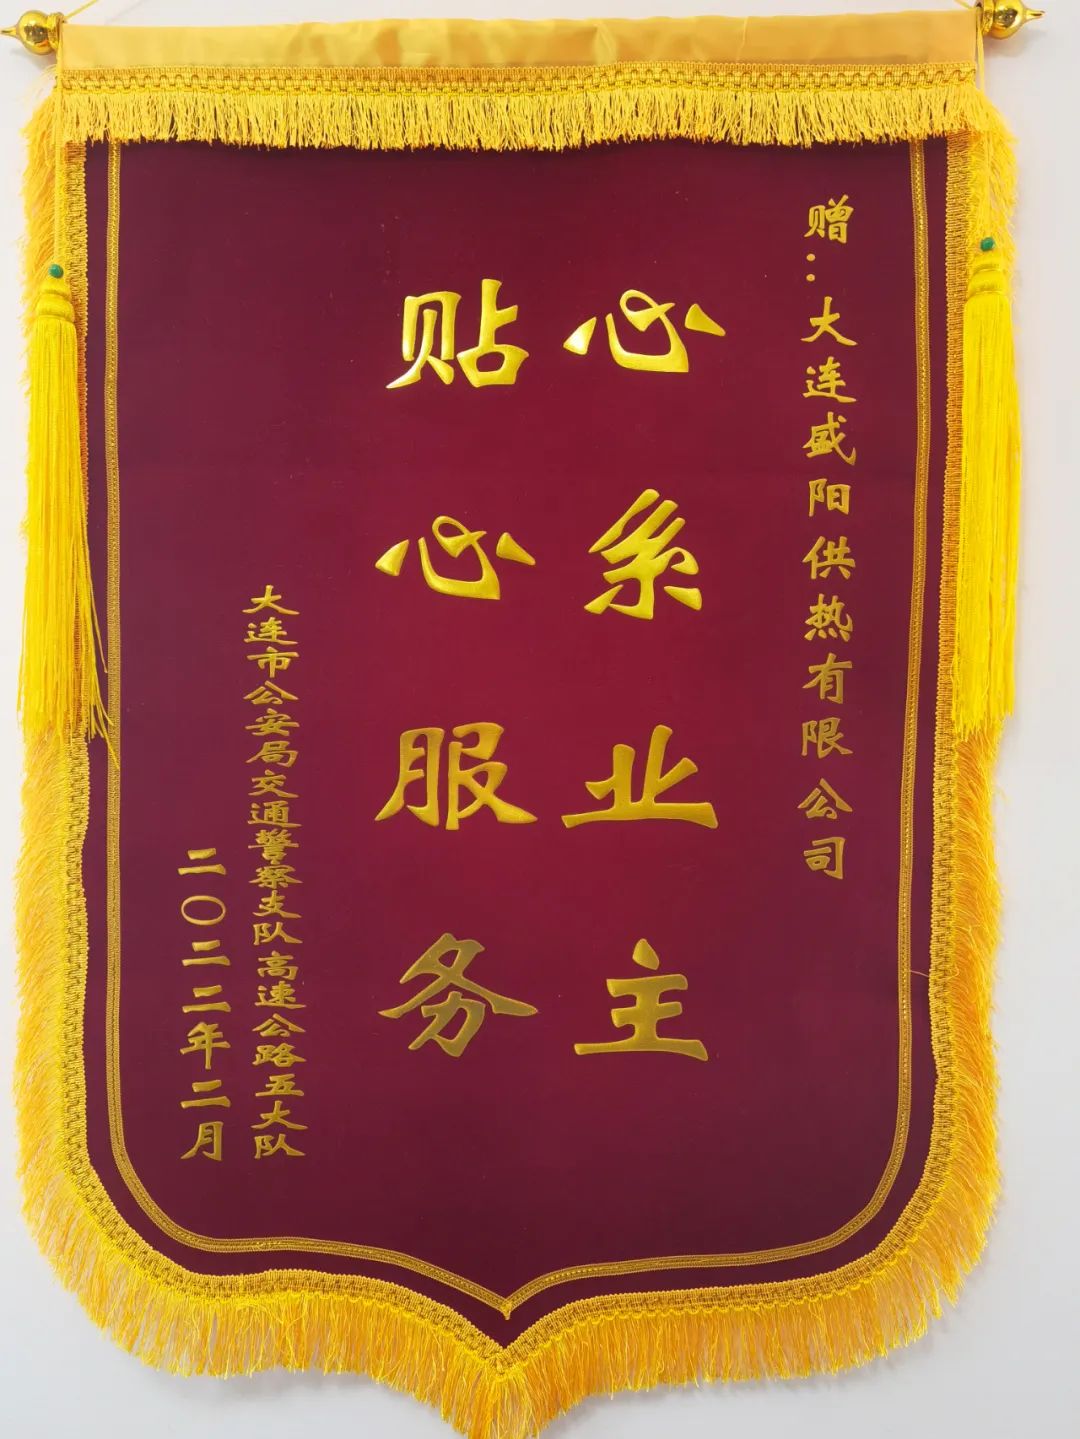 赠：大连盛阳供热有限公司
心系业主
贴心服务
大连市公安局交通警察支队高速公路五大队
二〇二二年二月